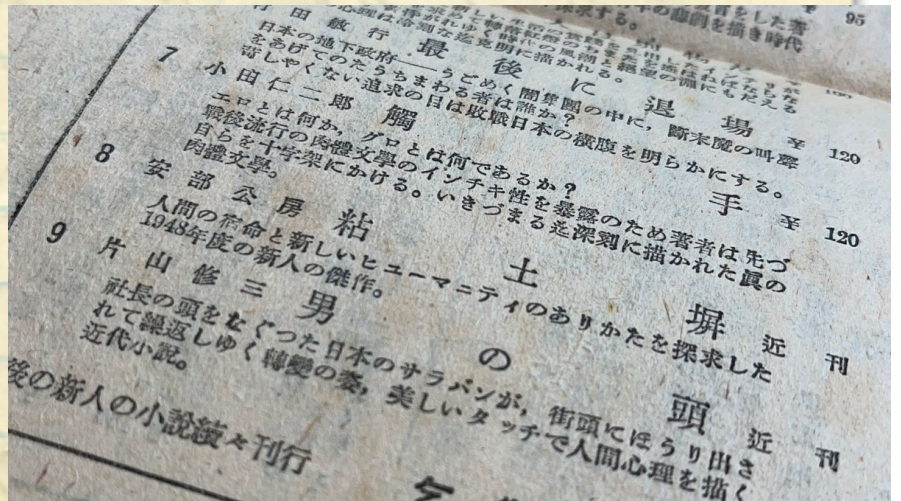 95
行田敏行 最後に退場 ¥120
日本の地下政府――うごめく闇算團の中に，斷末魔の叫聲
をあげてのたうちまわる者は誰か？
寄しやくない追求の目は敗戰日本の横腹を明らかにする。
7 小田仁二郎 觸手 ¥120
エロとは何か，グロとは何であるか？
戰後流行の肉體文學のインチキ性を暴露のため著者は先づ
自らを十字架にかける。いきづまる迄深刻に描かれた眞の
肉體文學。
8 安部公房 粘土塀 近刊
人間の宿命と新しいヒューマニティのありかたを探求した
1948年度の新人の傑作。
9 片山修三 男の頭 近刊
社長の頭をなぐつた日本のサラバンが，街頭にほうり出さ
れて繰返しゆく轉變の姿，美しいタッチで人間心理を描く
近代小説。
後の新人の小説續々刊行